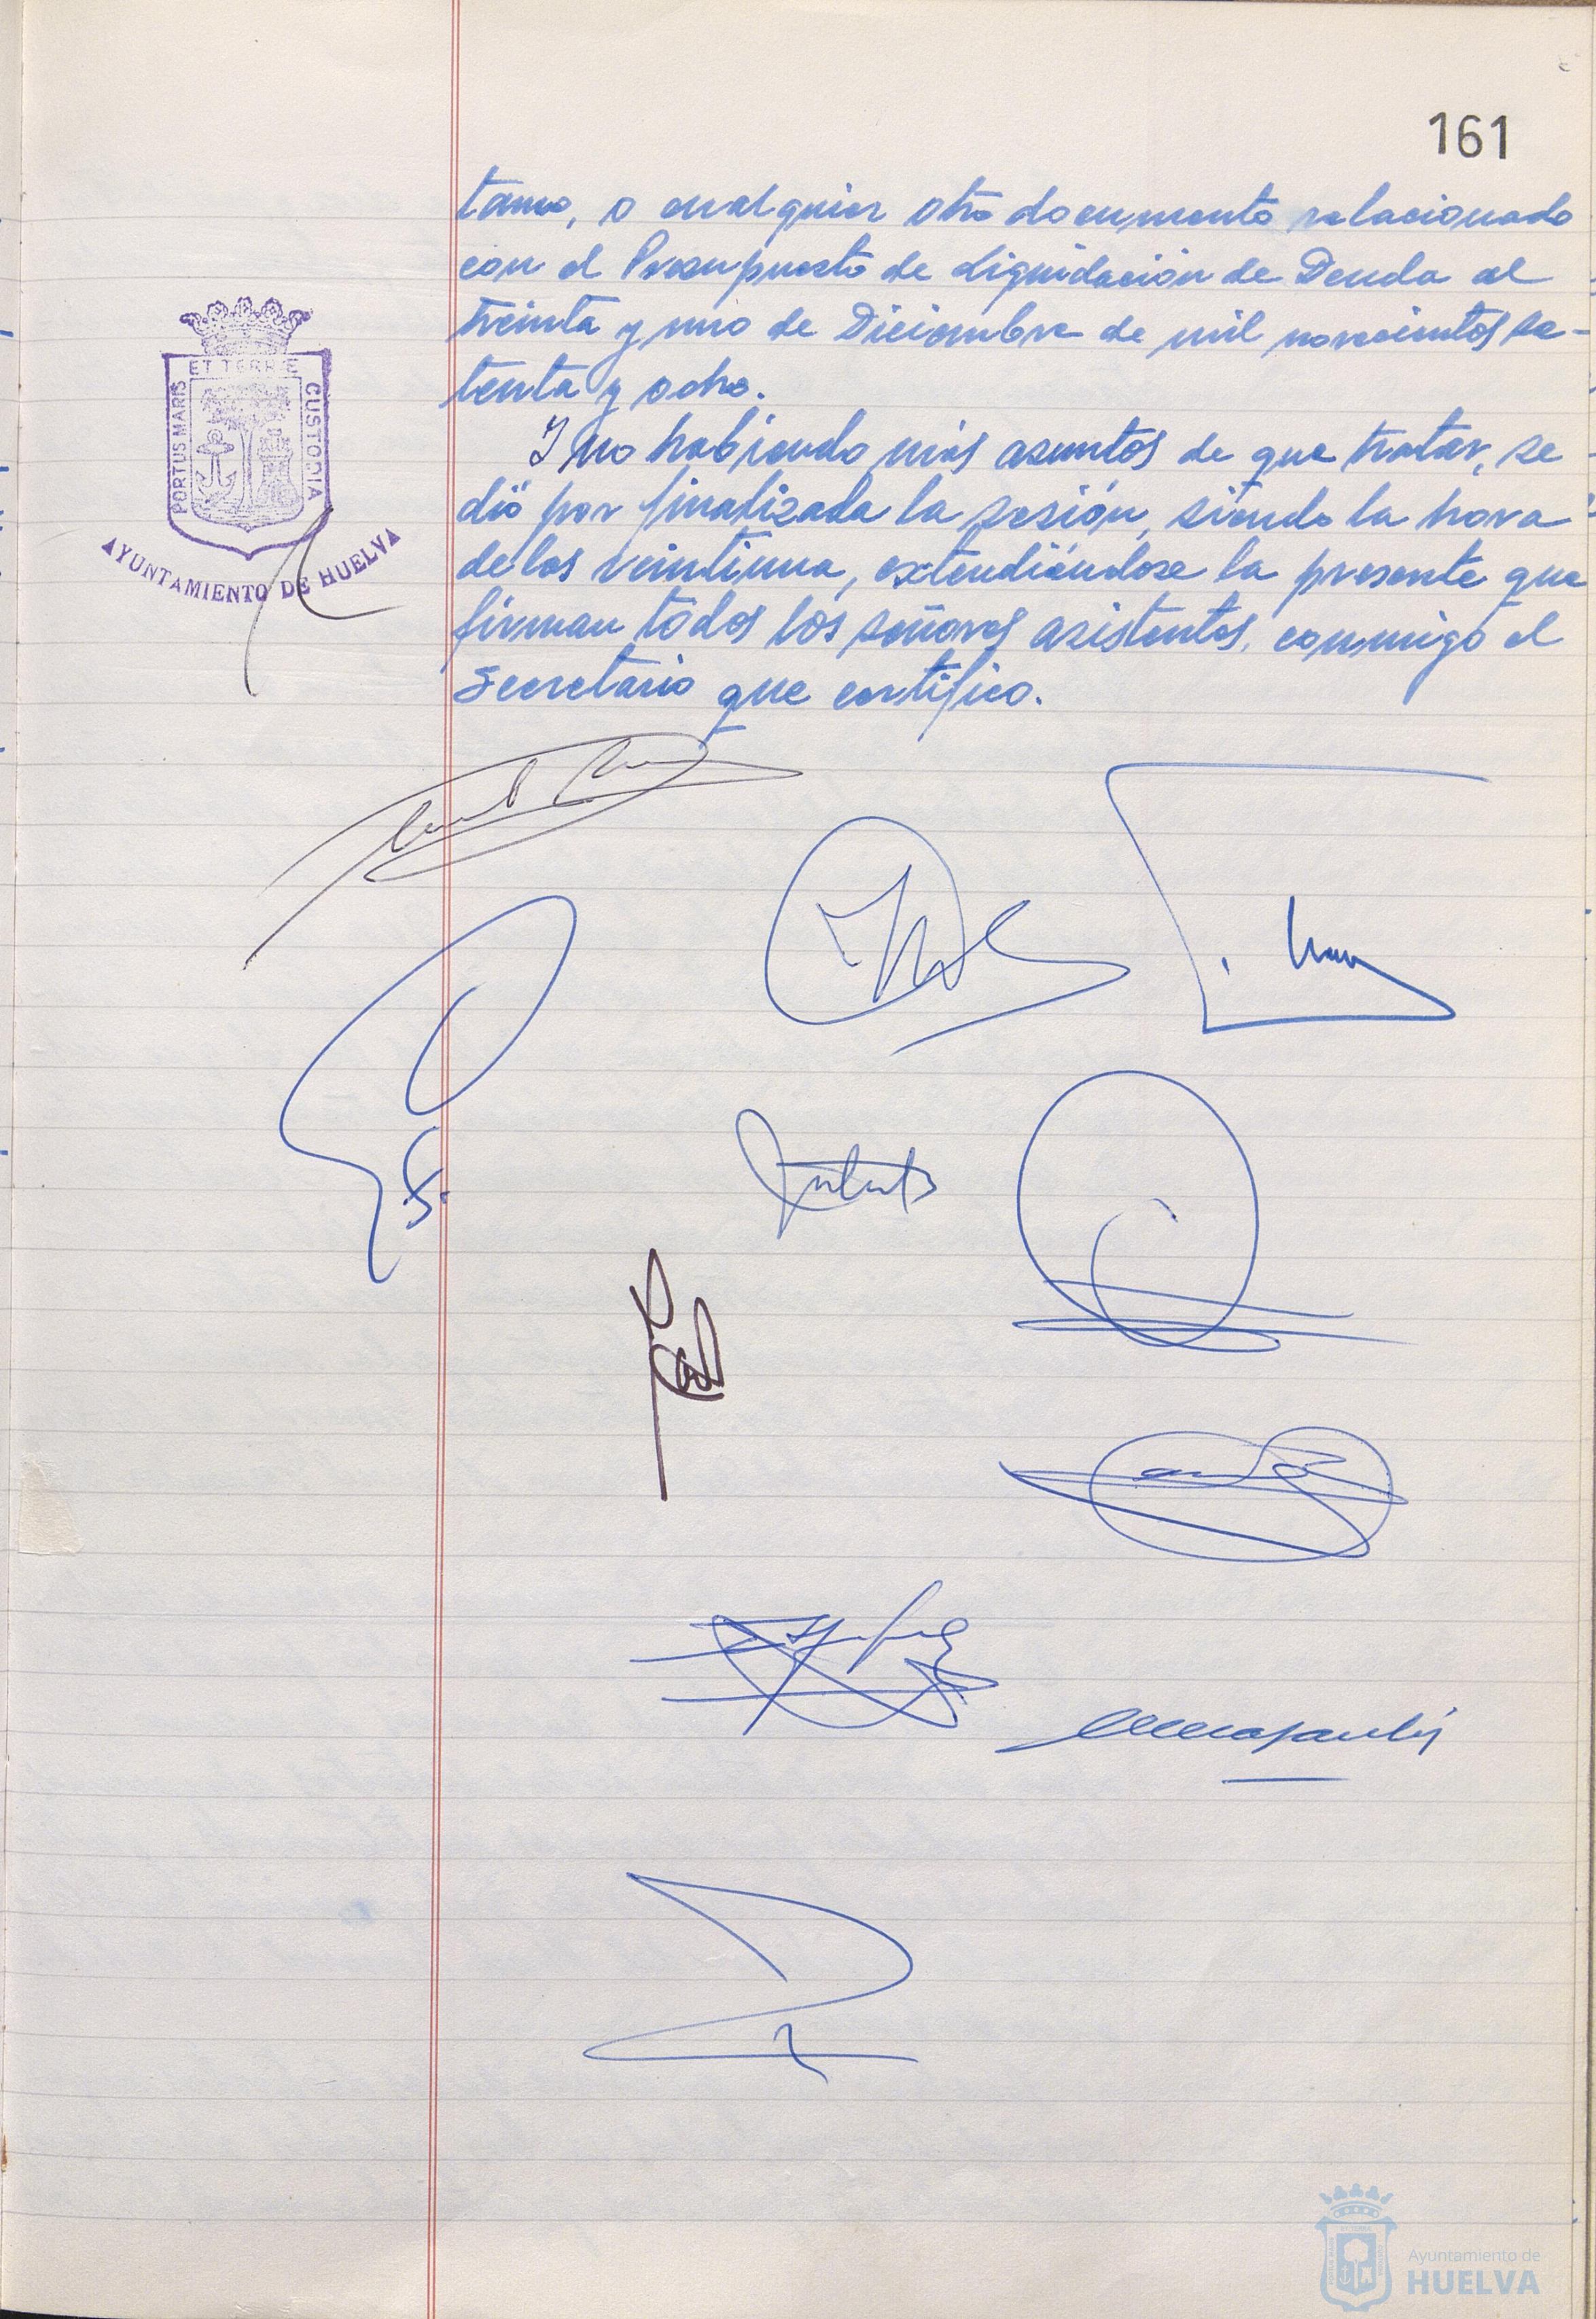 161
tamo, o cualquier otro documento relacionado
con el Presupuesto de Liquidación de Deuda al
treinta y uno de Diciembre de mil novecientos se-
tenta y ocho.
Y no habiendo más asuntos de que tratar, se
dió por finalizada la sesión, siendo la hora
de las veintiuna, extendiéndose la presente que
firman todos los señores asistentes, conmigo el
Secretario que certifico.
PORTUS MARIS ET TERRAE CUSTODIA
AYUNTAMIENTO DE HUELVA
Ayuntamiento de
HUELVA